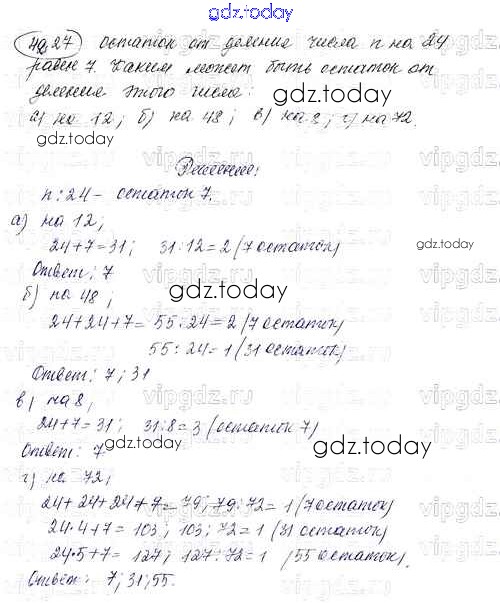 gdz.today
49.27 остаток от деление числа n на 24
равен 7. Каким может быть остаток от
деление этого числа:
а) на 12; б) на 48; в) на 8; г) на 72.
gdz.today
Решение:
n:24 - остаток 7.
а) на 12;
24+7=31; 31:12=2 (7 остаток)
gdz.today
Ответ: 7
б) на 48;
gdz.today
24+24+7=55:24=2 (7 остаток)
55:24=1 (31 остаток)
Ответ: 7; 31
в) на 8;
24+7=31; 31:8=3 (остаток 7)
Ответ: 7
gdz.today
gdz.today
г) на 72;
24+24+24+7=79; 79:72=1 (7 остаток)
24·4+7=103; 103:72=1 (31 остаток)
24·5+7=127; 127:72=1 (55 остаток).
Ответ: 7; 31; 55.
vipgdz.ru